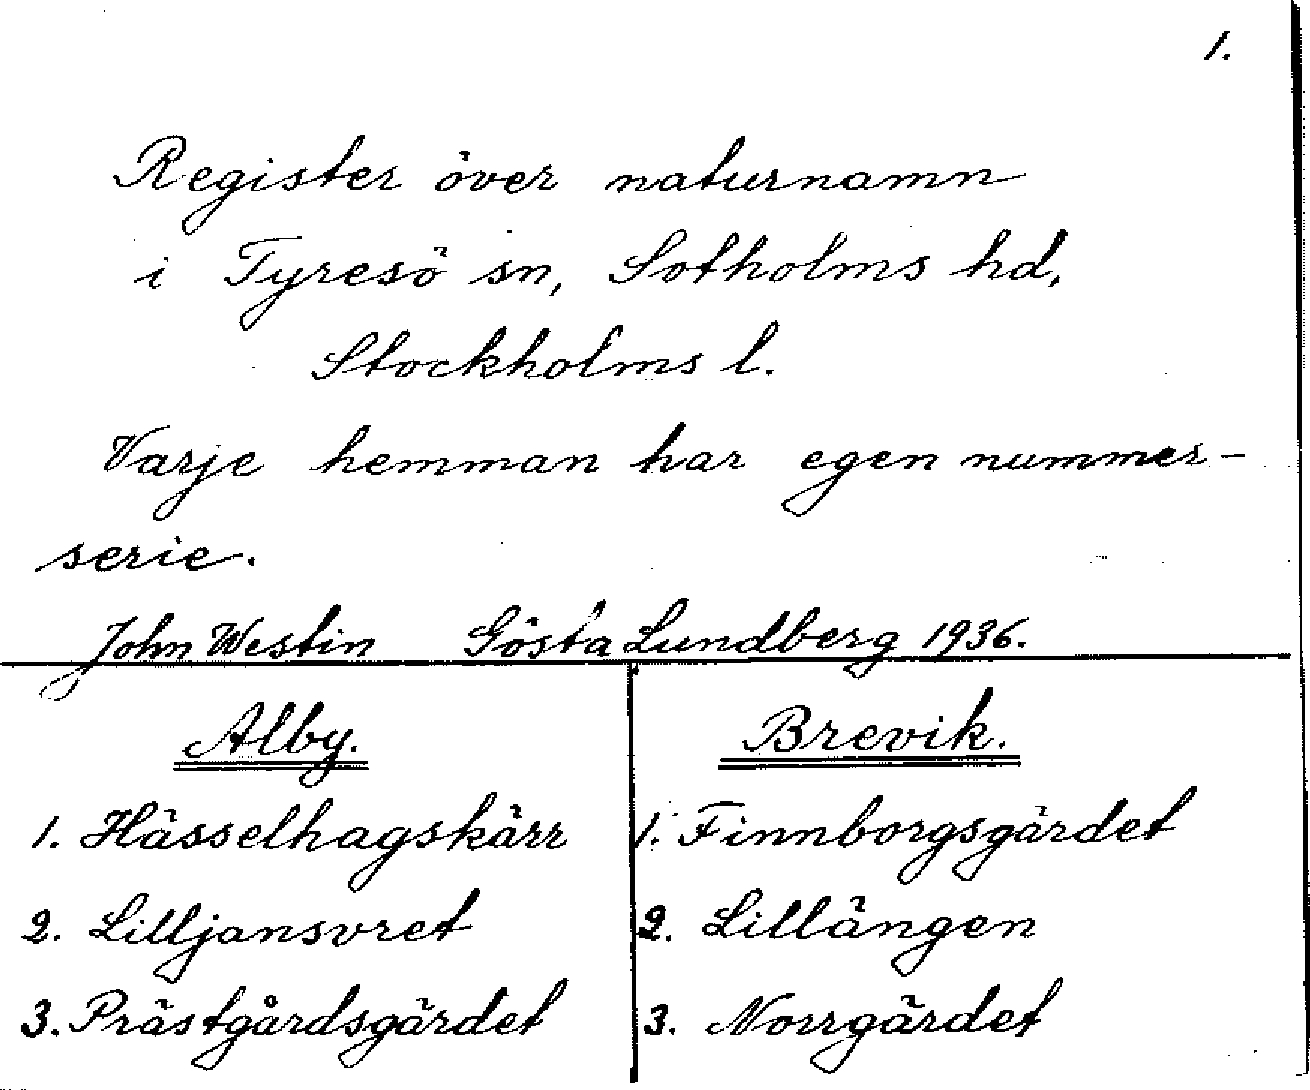 1.
Register över naturnamn
i Tyresö sn, Sotholms hd,
Stockholms l.
Varje hemman har egen nummer-
serie.
John Westin Gösta Lundberg 1936.
Alby.
1. Hässelhagskärr
2. Lilljansvret
3. Prästgårdsgärdet
Brevik.
1. Finnborgsgärdet
2. Lillängen
3. Norrgärdet